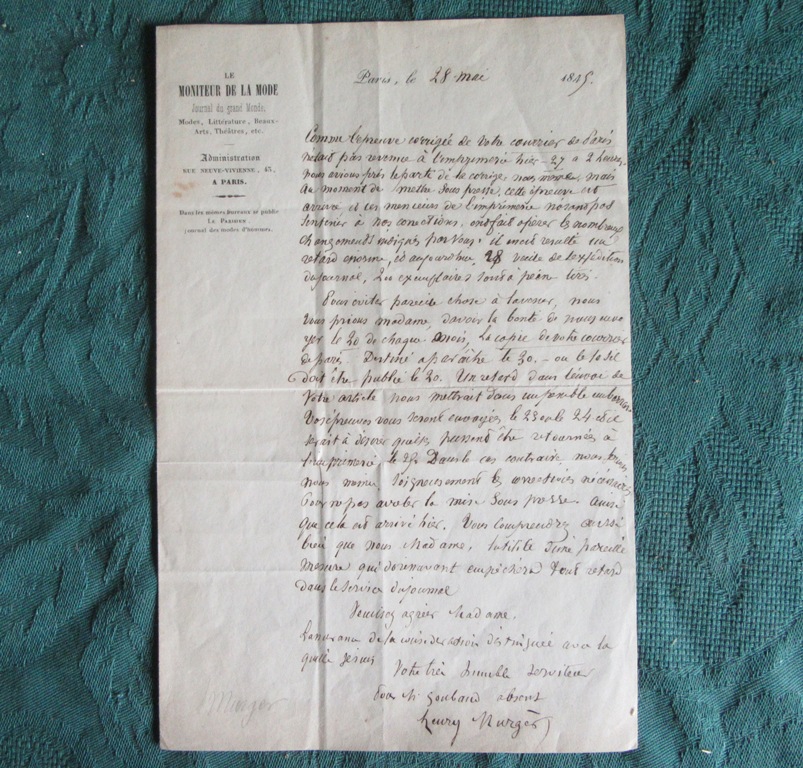 LE
MONITEUR DE LA MODE
Journal du grand Monde.
Modes, Littérature, Beaux-
Arts, Théâtres, etc.
Administration
RUE NEUVE-VIVIENNE, 43,
A PARIS.
Dans les mêmes Bureaux se publie
LE PARISIEN,
journal des modes d'hommes.
Paris, le 28 mai 1845.
Comme l'epreuve corrigée de votre courrier de Paris
n'etait pas revenue à l'imprimerie hier 27 a 2 heures
nous avions pris le parti de le corriger nous même, mais
au moment de mettre sous presse, cette épreuve est
arrivée et ces messieurs de l'imprimerie
à nos corrections, ont fait opérer les nombreux
changements indiqués par vous. il
retard enorme, et aujourdhui 28 veille de l'expédition
du journal, les exemplaires sont a peine tirés.
Pour eviter pareille chose à l'avenir, nous
vous prions madame, d'avoir la bonté de nous envo
yer le 20 de chaque mois, la copie de votre courrier
de paris. Destiné a paraître le 30. — ou le 10 s'il
doit être publié le 20. Un retard dans l'envoi de
votre article nous mettrait dans un penible embarras
Vos épreuves vous seront envoyées le 23 ou le 24 et il
serait à désirer quelles pussent être retournées à
l'imprimerie le 25. Dans le cas contraire nous
nous même soigneusement les corrections nécessaires
Pour ne pas arreter la mise sous presse ainsi
que cela est arrivé hier. Vous comprendrez aussi
bien que nous Madame, d'une pareille
mesure qui dorenavant empêchera tout retard
dans le service du journal
Veuillez agréer Madame.
L'assurance de la considération distinguée avec la
quelle je suis
Votre très humble serviteur
Pour Mr Goubaud absent
Henry Murger
Murger